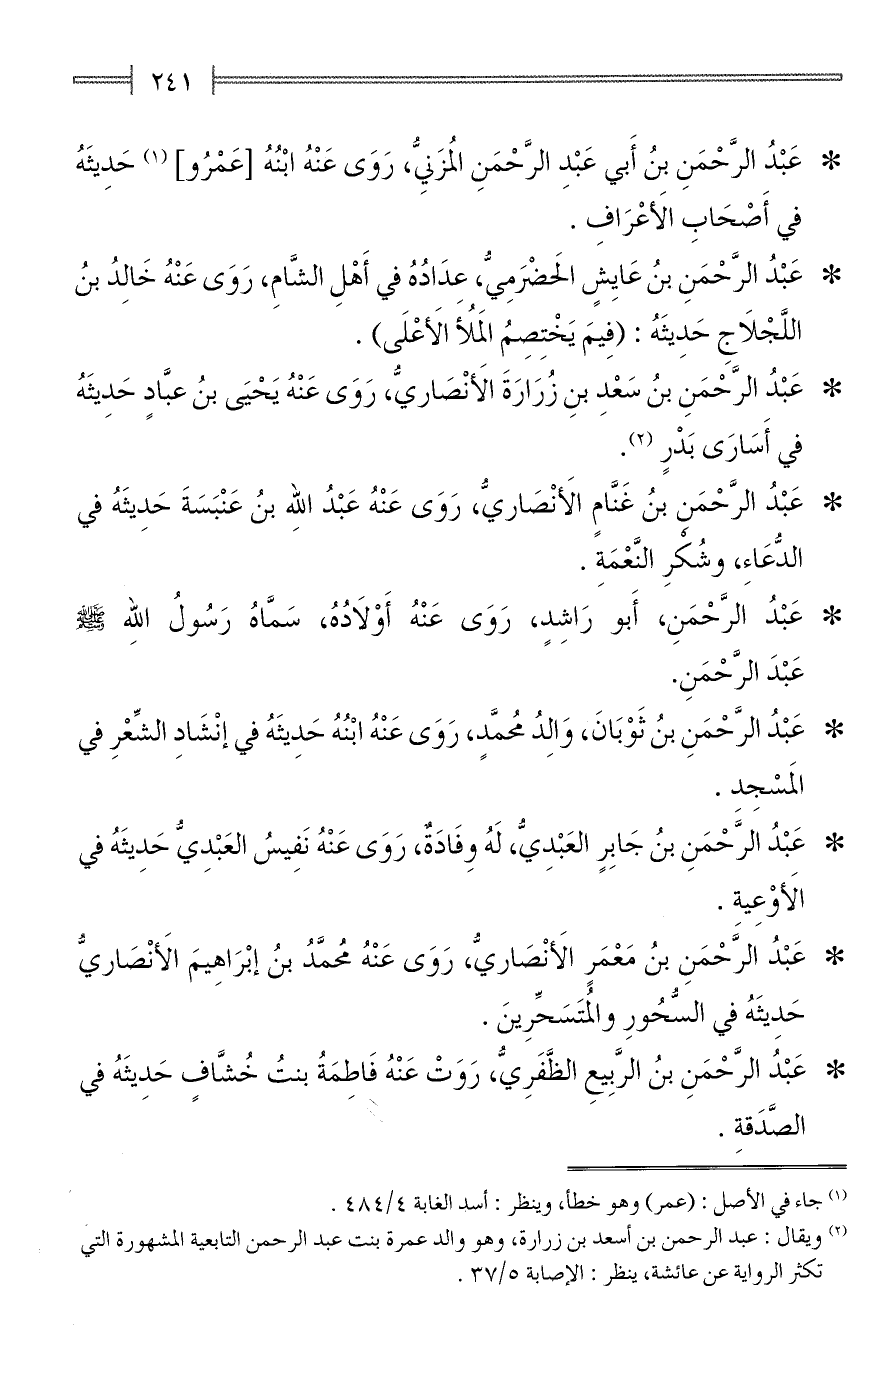 ٢٤١
* عَبْدُ الرَّحْمَنِ بنُ أَبي عَبْدِ الرَّحْمَنِ المُزَنيُّ، رَوَى عَنْهُ ابْنُهُ [عَمْرُو] (١) حَدِيثَهُ
في أَصْحَابِ الأَعْرَافِ .
* عَبْدُ الرَّحْمَنِ بنُ عَايِشٍ الحَضْرَمِيُّ، عِدَادُهُ في أَهْلِ الشَّامِ، رَوَى عَنْهُ خَالِدُ بنُ
اللَّجْلَاجِ حَدِيثَهُ : (فِيمَ يَخْتِصِمُ المَلأُ الأَعْلَى) .
* عَبْدُ الرَّحْمَنِ بنُ سَعْدِ بنِ زُرَارَةَ الأَنْصَاريُّ، رَوَى عَنْهُ يَحْيَى بنُ عبَّادٍ حَدِيثَهُ
في أَسَارَى بَدْرٍ (٢).
* عَبْدُ الرَّحْمَنِ بنُ غَنَّامٍ الأَنْصَاريُّ، رَوَى عَنْهُ عَبْدُ اللهِ بنُ عَنْبَسَةَ حَدِيثَهُ في
الدُّعَاءِ، وشُكْرِ النَّعْمَةِ .
* عَبْدُ الرَّحْمَنِ، أَبو رَاشِدٍ، رَوَى عَنْهُ أَوْلَادُهُ، سَمَّاهُ رَسُولُ اللهِ ﷺ
عَبْدَ الرَّحْمَنِ.
* عَبْدُ الرَّحْمَنِ بنُ ثَوْبَانَ، وَالِدُ مُحمَّدٍ، رَوَى عَنْهُ ابْنُهُ حَدِيثَهُ في إنْشَادِ الشِّعْرِ في
المَسْجِدِ .
* عَبْدُ الرَّحْمَنِ بنُ جَابِرٍ العَبْدِيُّ، لَهُ وِفَادَةٌ، رَوَى عَنْهُ نَفِيسُ العَبْدِيُّ حَدِيثَهُ في
الأَوْعِيةِ .
* عَبْدُ الرَّحْمَنِ بنُ مَعْمَرٍ الأَنْصَاريُّ، رَوَى عَنْهُ مُحمَّدُ بنُ إبْرَاهِيمَ الأَنْصَاريُّ
حَدِيثَهُ في السُّحُورِ والمُتَسَحِّرِينَ .
* عَبْدُ الرَّحْمَنِ بنُ الرَّبِيعِ الظَّفَرِيُّ، رَوَتْ عَنْهُ فَاطِمَةُ بنتُ خُشَّافٍ حَدِيثَهُ في
الصَّدَقةِ .
(١) جاء في الأصل : (عمر) وهو خطأ، وينظر : أسد الغابة ٤/ ٤٨٤ .
(٢) ويقال : عبد الرحمن بن أسعد بن زرارة، وهو والد عمرة بنت عبد الرحمن التابعية المشهورة التي
تكثر الرواية عن عائشة، ينظر : الإصابة ٥/ ٣٧ .